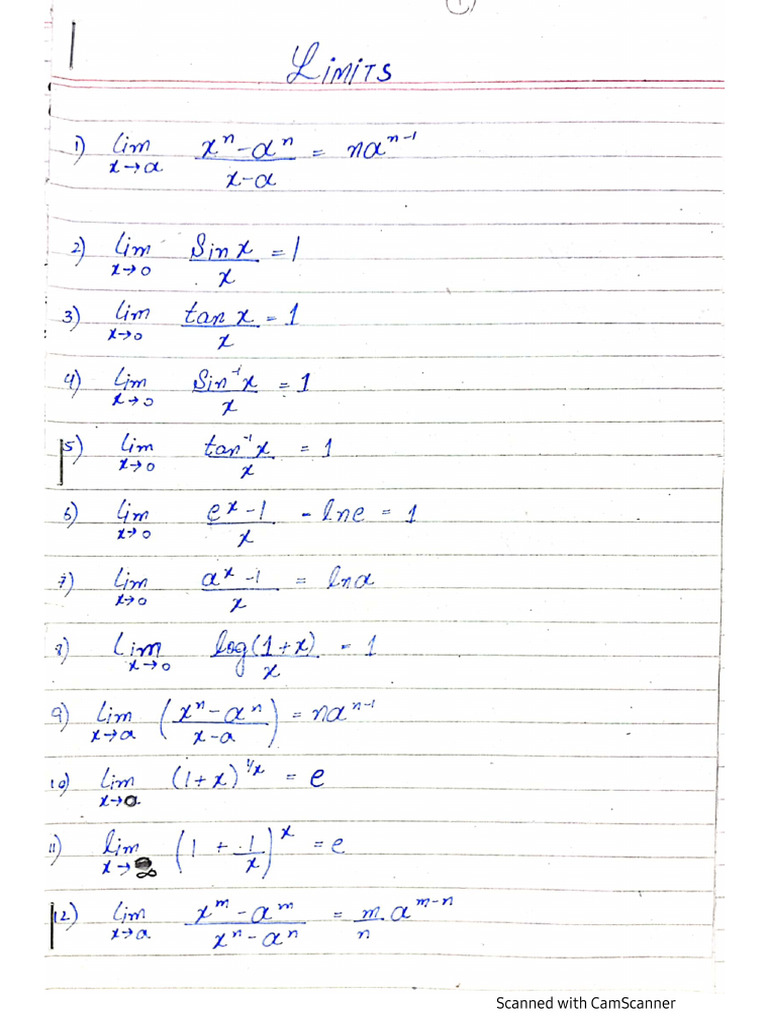 1
LIMITS
1) lim x→a (xⁿ-aⁿ)/(x-a) = naⁿ⁻¹
2) lim x→0 Sin x/x = 1
3) lim x→0 tan x/x = 1
4) lim x→0 Sin⁻¹x/x = 1
5) lim x→0 tan⁻¹x/x = 1
6) lim x→0 (eˣ-1)/x - lne = 1
7) lim x→0 (aˣ-1)/x = lna
8) Lim x→0 log(1+x)/x = 1
9) lim x→a ((xⁿ-aⁿ)/(x-a)) = naⁿ⁻¹
10) lim x→0 (1+x)^(1/x) = e
11) lim x→∞ (1 + 1/x)ˣ = e
12) lim x→a (xᵐ-aᵐ)/(xⁿ-aⁿ) = m/n . aᵐ⁻ⁿ
Scanned with CamScanner